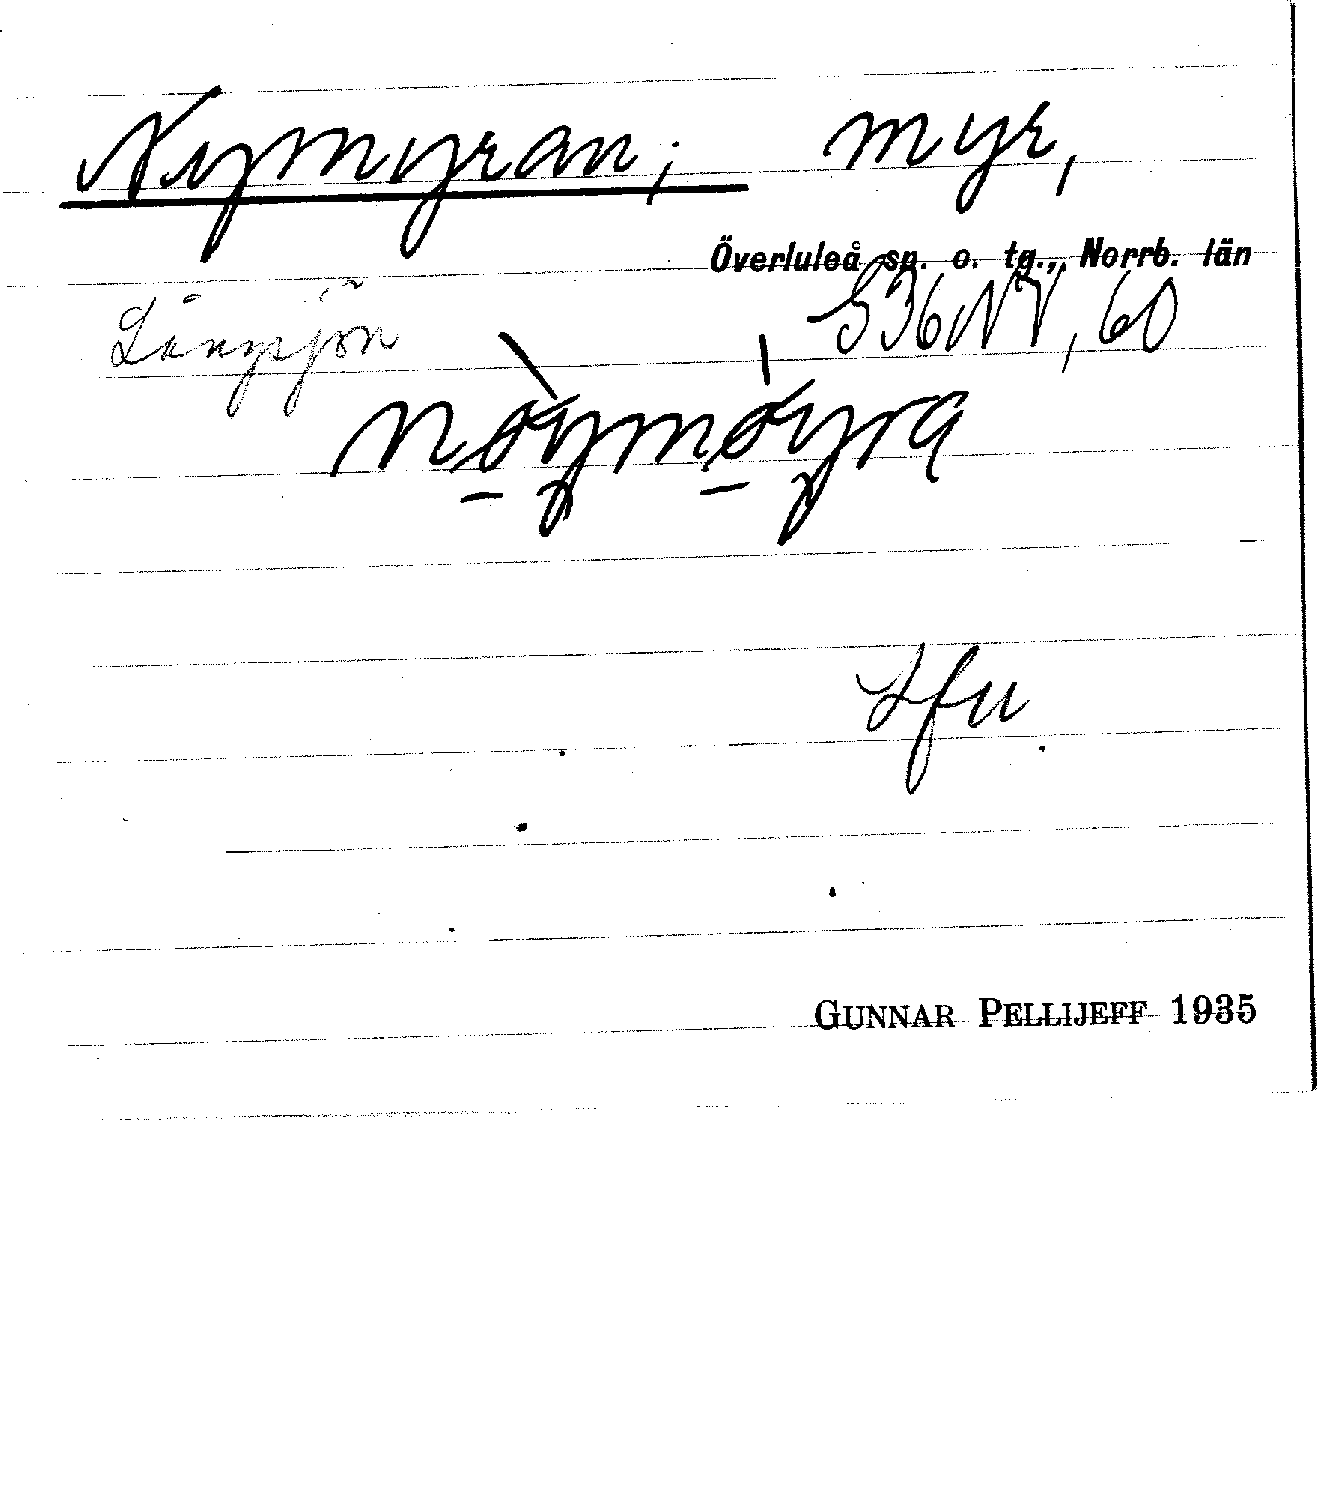 Nymyran; myr,
Överluleå sn. o. tg., Norrb. län
Långsjön S36NV, 60
nøymøyra
Lfu.
GUNNAR PELLIJEFF 1935